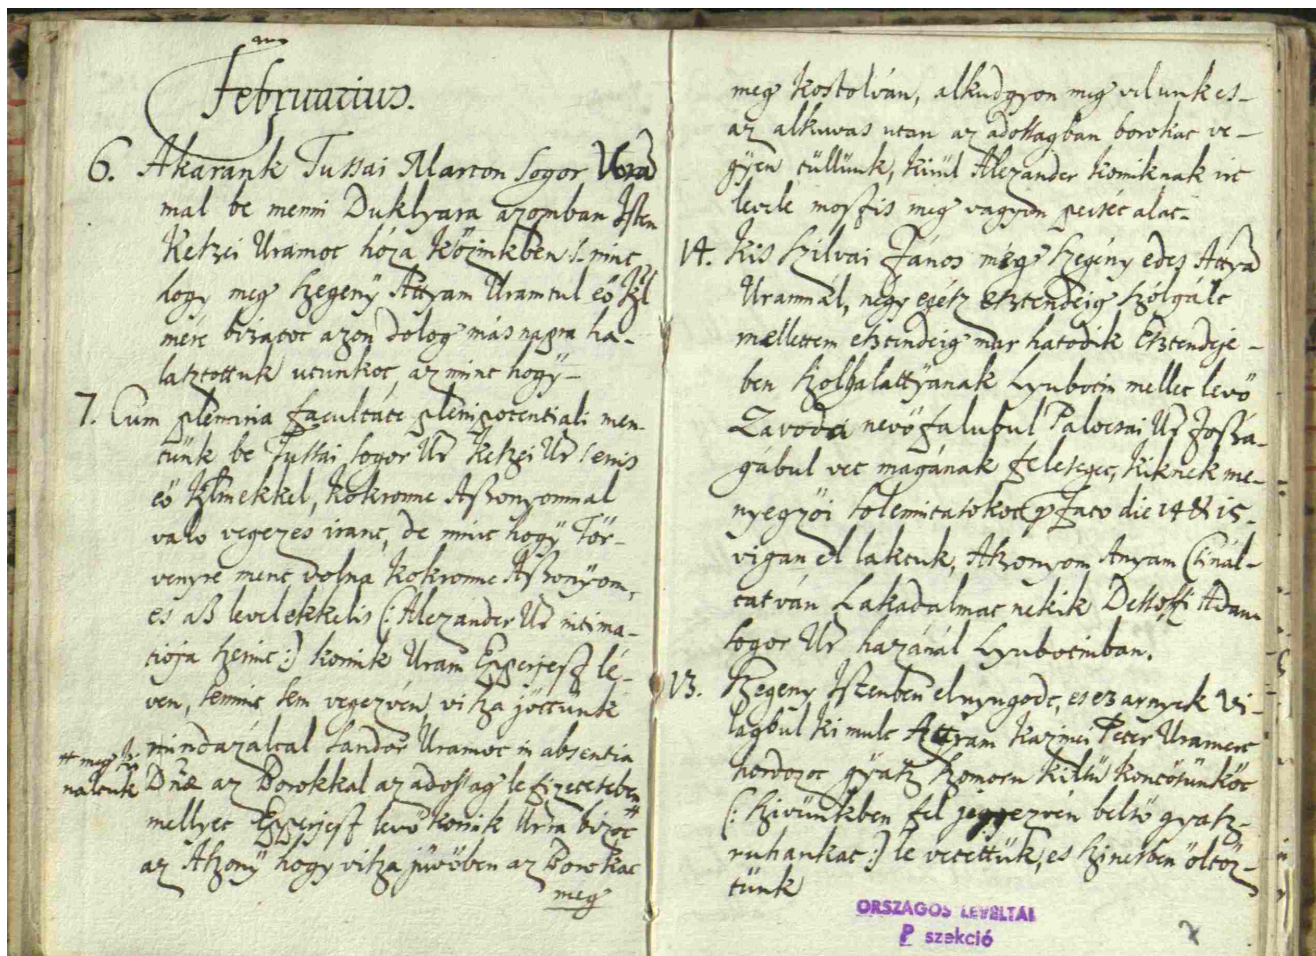 Februarius.
6. Akarank Tussai Marton Sogor Uram
mal be menni Duklyara azomban Isten
Ketzei Uramot hóza közinkben /. mint
hogy meg szegény Attyam Uramtul eö Kgl
mére bizatot azon dolog más napra ha-
laztottuk utunkot, az mint hogÿ-
7. Cum plenaria facultate plenipotentiali men-
tünk be Tussai Sogor Ur Ketzei Ur
eö Kglmekkel, Kokronne Aszonyomnal
valo vegezes iránt, de mint hogÿ Tör-
venyre ment volna Kokronne Aszonÿom,
es aß levelekkelis (: Alexander Ur intima-
tioja szerint :) Komik Uram Eperjest lé-
ven, semmit sem vegezvén visza jöttünk
mindazáltal Sandor Uramot in absentia
Dnae az Borokkal az adossag le fizeteseben
meg ki
naltuk
mellyet Eperjest levö Komik Urra bizot
az Aszonÿ hogy visza jüvöben az Borokat
meg
meg kostolván, alkudgyon meg velunk es-
az alkuvas utan az adossagban borokat ve-
gÿen tüllünk, kirül Alexander Komiknak irt
levele mostis meg vagyon peisét alat-
14. Kis Szilvai János még szegény edes Attyam
Uramnál, negy egész esztendeig szólgált
mellettem esztendeig mar hatodik Esztendeje-
ben szolgalattÿanak Lyubotin mellet levö
Zavoda nevö falubul Palocsai Ur Jossá-
gábul vet magának feleseget, kiknek me-
nyegzöi solemnitasokot facto die 14 & 15.
vigan el laktuk, Aszonyom Anyam Csinál-
tatván Lakadalmat nekik Dessöffi Adam
Sogor Ur hazánál Lyubotinban.
13. Szegeny Istenben elnyugodt, es ez arnyek vi-
lagbul ki mult Attyam Kazmei Peter Uramert
hordozot gyász szomoru külsü köntösünköt
(: Szivünkben fel jegyezvén belsö gyasz-
ruhankat :) le vetettük, es szinesben öltöz-
tünk
ORSZÁGOS LEVÉLTÁR
P szekció
7